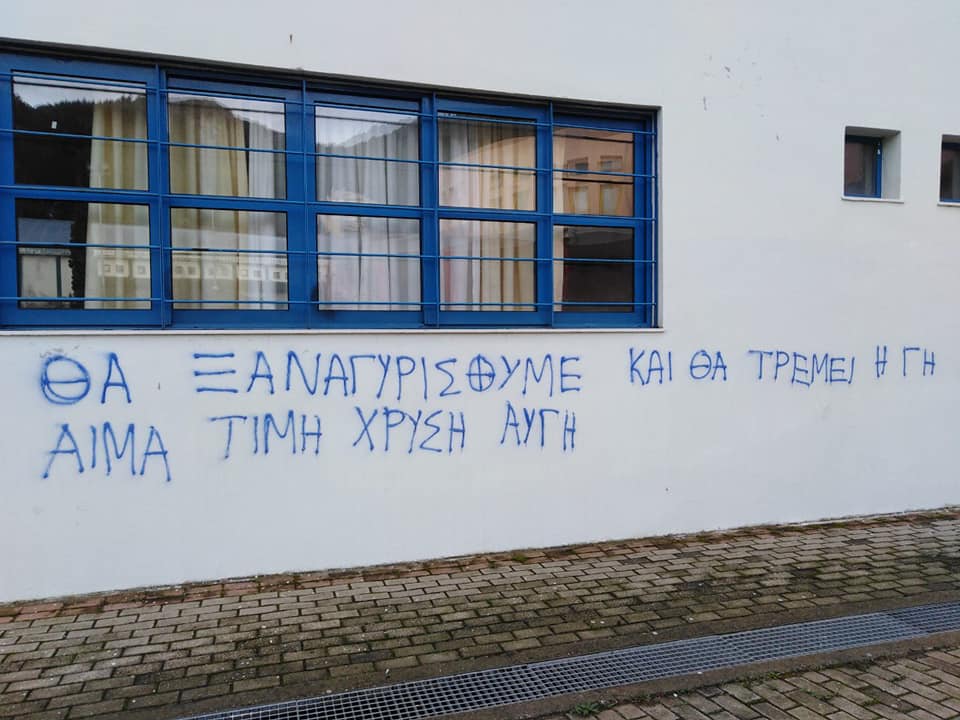 ΘΑ ΞΑΝΑΓΥΡΙΣΘΥΜΕ ΚΑΙ ΘΑ ΤΡΕΜΕΙ Η ΓΗ
ΑΙΜΑ ΤΙΜΗ ΧΡΥΣΗ ΑΥΓΗ